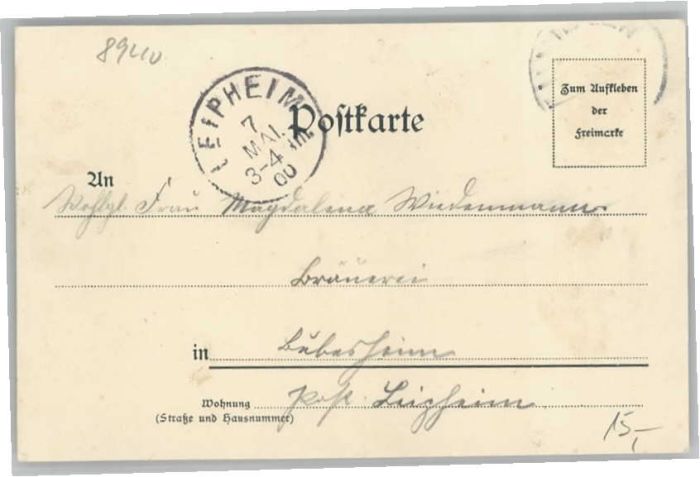 8940
LEIPHEIM
7
MAI.
3-4
00
Postkarte
Zum Aufkleben
der
Freimarke
An
Wohlgb. Frau Magdalena Wiedemann
Bräuerei
in Bubesheim
Wohnung Post Leipheim
(Straße und Hausnummer)
15,-